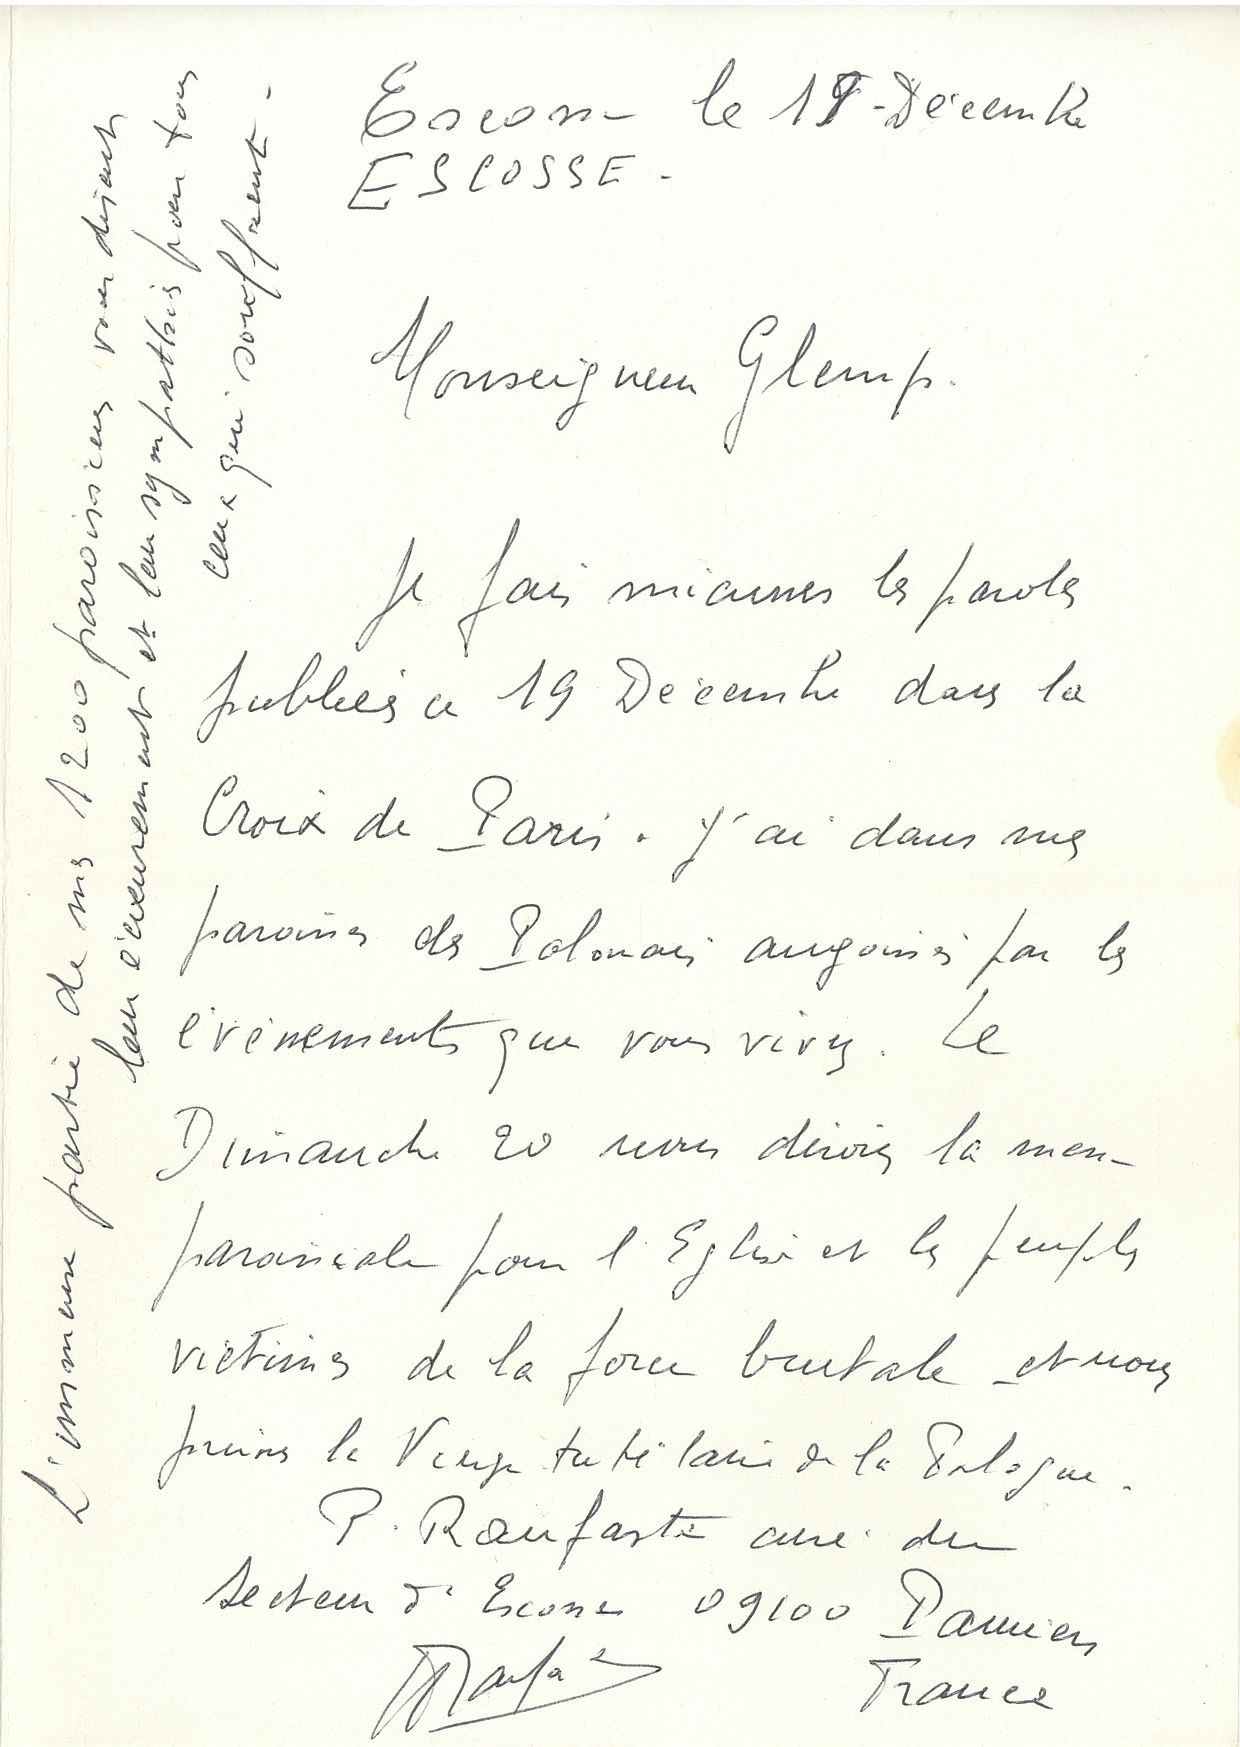 Escosse le 19 Décembre
ESCOSSE.
Monseigneur Glemp.
Je fais miennes les paroles
publiées ce 19 Décembre dans la
Croix de Paris. J'ai dans mes
paroisses des Polonais angoissés par les
évènements que vous vivez. Le
Dimanche 20 nous dirons la messe
paroissiale pour l'Eglise et les peuples
victimes de la force brutale et nous
prions la Vierge tutélaire de la Pologne.
P. Raufaste curé du
secteur d'Escosse 09100 Pamiers
France
L'immense partie de mes 1200 paroissiens vous disent
leur écœurement et leur sympathie pour tous
ceux qui souffrent.